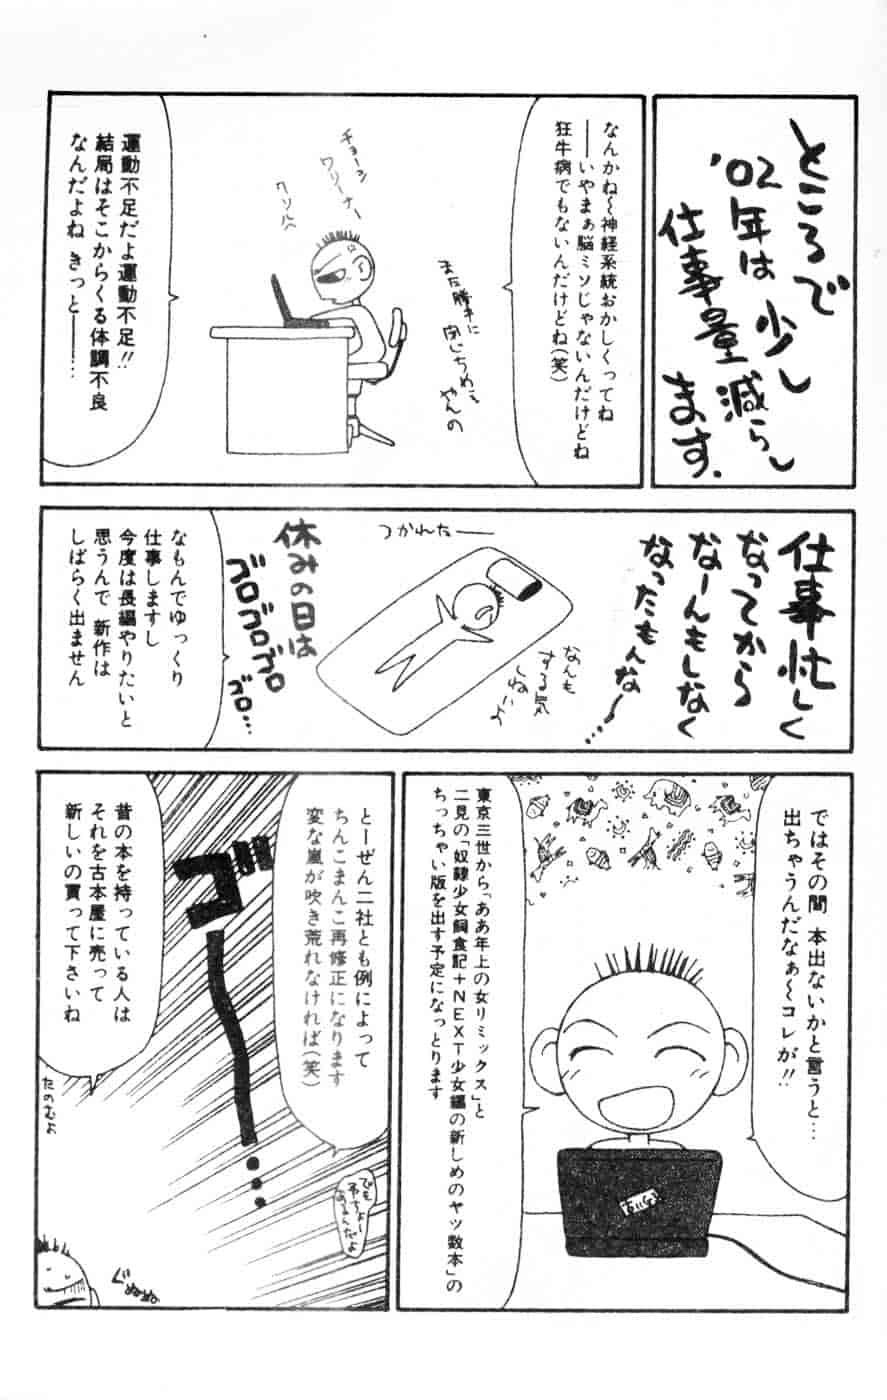 ところで
'02年は少し
仕事量減らし
ます.
なんかね〜神経系統おかしくってね
――いやまぁ脳ミソじゃないんだけどね
狂牛病でもないんだけどね(笑)
また勝手に
閉じちめて
やんの
チョーシ
ワリーナー
クソルへ
運動不足だよ運動不足!!
結局はそこからくる体調不良
なんだよね きっと――…
仕事忙しく
なってから
なーんもしなく
なったもんな〜…
なんも
する気
しねーよ
つかれた――
休みの日は
ゴロゴロゴロ
ゴロ…
なもんでゆっくり
仕事しますし
今度は長編やりたいと
思うんで 新作は
しばらく出ません
ではその間 本出ないかと言うと…
出ちゃうんだなぁ〜コレが!!
東京三世から「ああ年上の女リミックス」と
二見の「奴隷少女飼食記+NEXT少女編の新しめのヤツ数本」の
ちっちゃい版を出す予定になっとります
とーぜん二社とも例によって
ちんこまんこ再修正になります
変な嵐が吹き荒れなければ(笑)
でも
予ちょー
あるんだよ
ゴー…
昔の本を持っている人は
それを古本屋に売って
新しいの買って下さいね
たのむよ
ぐぬぬぬ